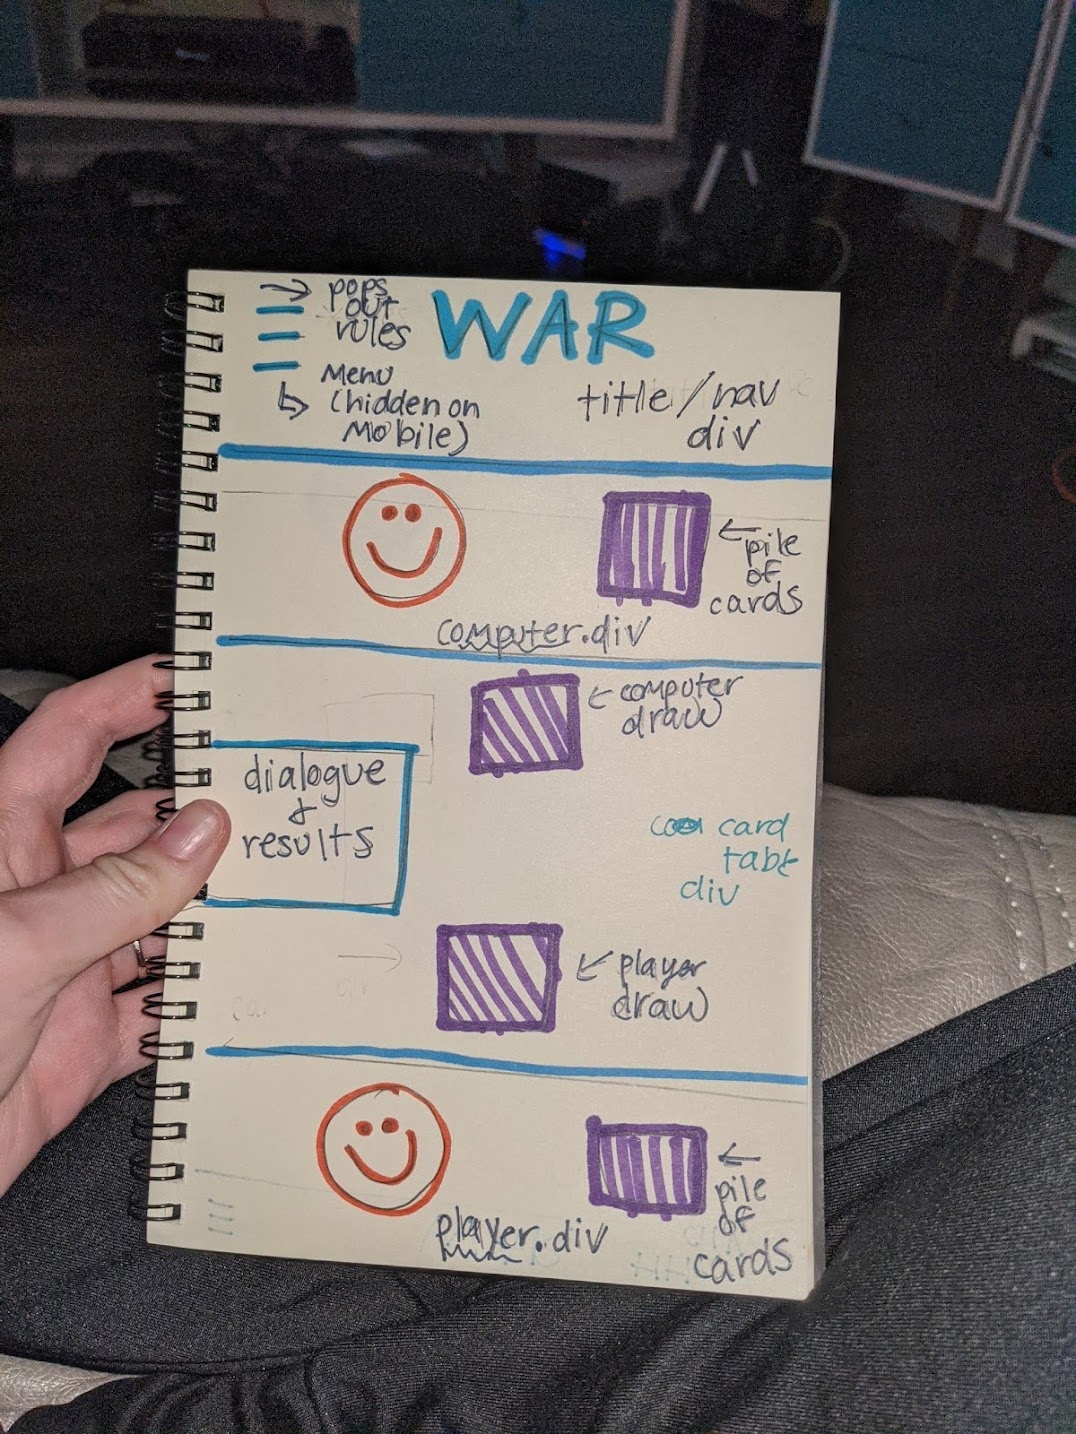 pops
out
rules
WAR
Menu
(hidden on
Mobile)
title/nav
div
pile
of
cards
computer.div
computer
draw
dialogue
&
results
card
table
div
player
draw
player.div
pile
of
cards